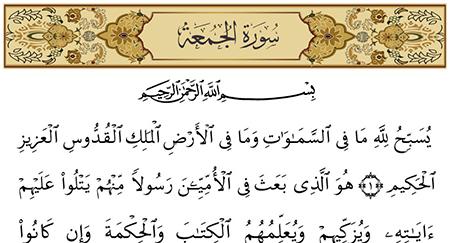 سُورَةُ الجُمُعَةِ
بِسْمِ ٱللَّهِ ٱلرَّحْمَٰنِ ٱلرَّحِيمِ
يُسَبِّحُ لِلَّهِ مَا فِى ٱلسَّمَٰوَٰتِ وَمَا فِى ٱلْأَرْضِ ٱلْمَلِكِ ٱلْقُدُّوسِ ٱلْعَزِيزِ
ٱلْحَكِيمِ ﴿١﴾ هُوَ ٱلَّذِى بَعَثَ فِى ٱلْأُمِّيِّۦنَ رَسُولًا مِّنْهُمْ يَتْلُوا۟ عَلَيْهِمْ
ءَايَٰتِهِۦ وَيُزَكِّيهِمْ وَيُعَلِّمُهُمُ ٱلْكِتَٰبَ وَٱلْحِكْمَةَ وَإِن كَانُوا۟